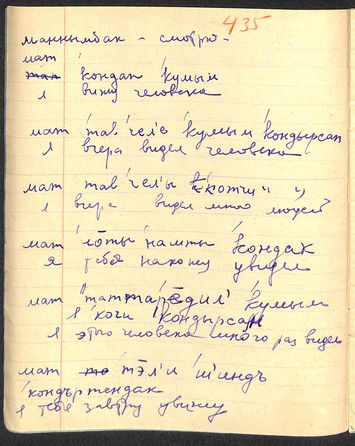 435
маннымбак - смотрю -
мат
кондап кумым
я вижу человека
мат таʼв чел'е кумым кондырсап
я вчера видел человека
мат таʼв чел'ы кочи " "
я вчера видел много людей
мат кондак
я тебя нахожу увидел
мат кумым
кочи кондырсап
я этого человека много раз видел
мат тэл'и шиндъ
кондъртендак
я тебя завтра увижу